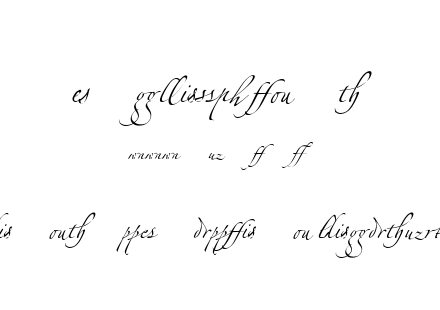 es ggllisssphffou th
wnwnwn uz ff ff
is outh ppes drppffis ou llisggdrthuzr